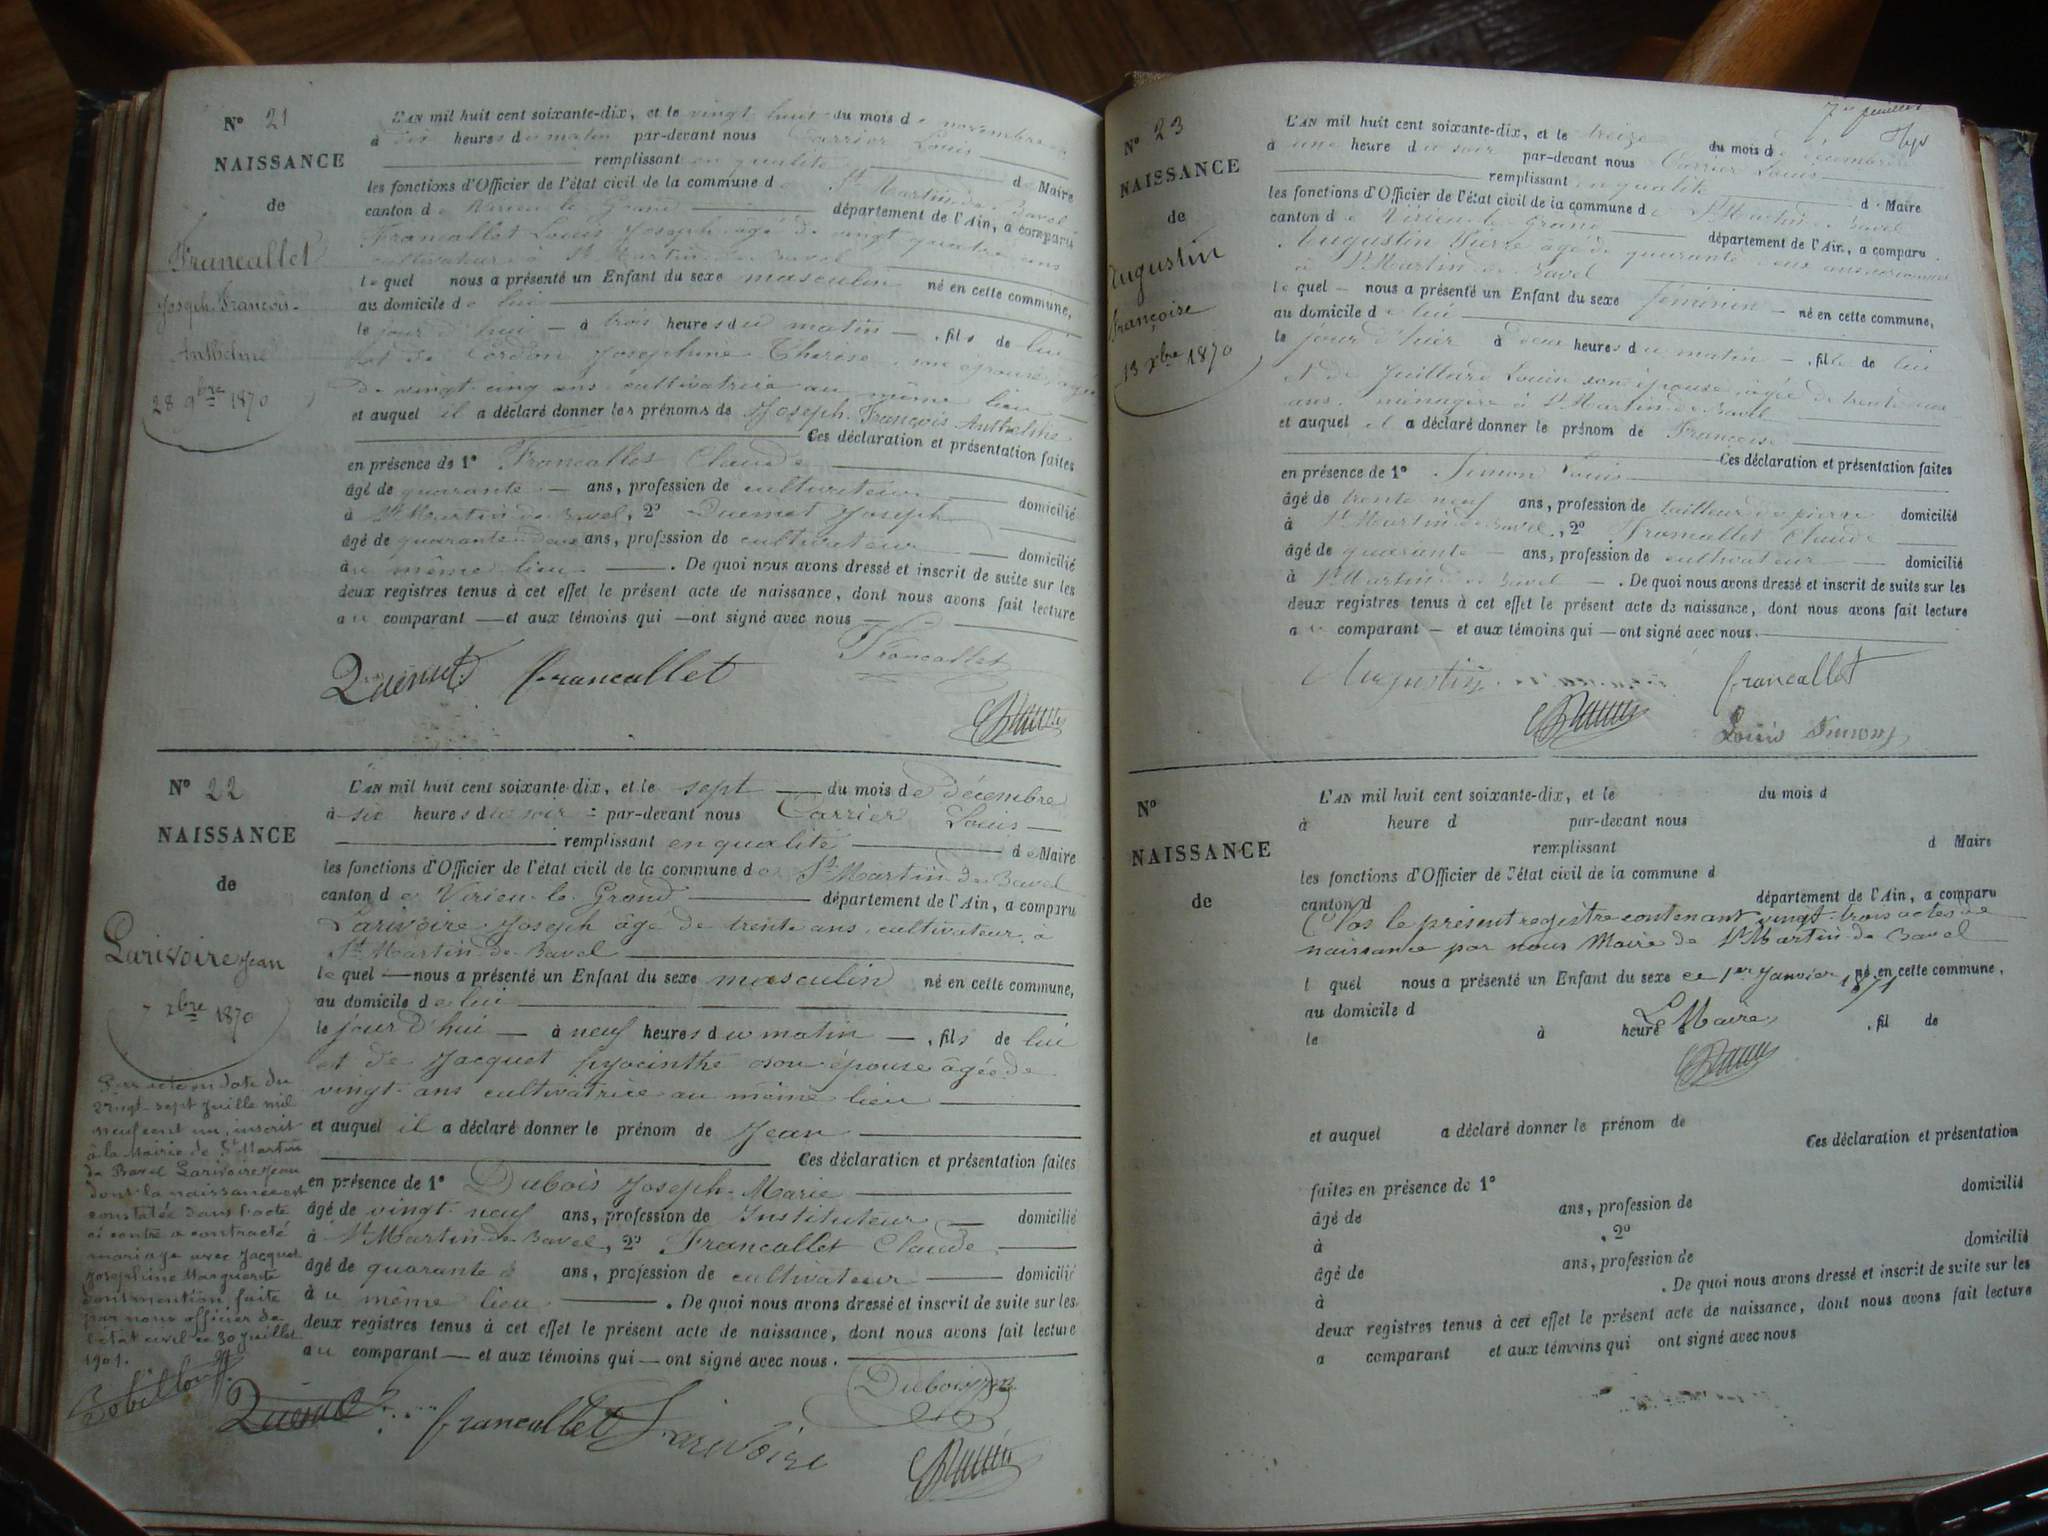 N° 21
NAISSANCE
de
Francallet
Joseph François
Anthelme
28 9bre 1870
L'AN mil huit cent soixante-dix, et le vingt huit du mois de novembre
à dix heures du matin par-devant nous Carrier Louis
remplissant en qualité de Maire
les fonctions d'Officier de l'état civil de la commune de St Martin de Bavel
canton de Virieu le Grand département de l'Ain, a comparu
Francallet Louis Joseph âgé de vingt quatre ans
cultivateur à St Martin de Bavel
lequel nous a présenté un Enfant du sexe masculin né en cette commune,
au domicile de lui
le jour d'hui à trois heures du matin , fils de lui
et de Cordon Joséphine Thérèse son épouse, âgée
de vingt cinq ans cultivatrice au même lieu
et auquel il a déclaré donner les prénoms de Joseph François Anthelme
Ces déclaration et présentation faites
en présence de 1° Francallet Claude
âgé de quarante ans, profession de cultivateur domicilié
à St Martin de Bavel, 2° Joseph
âgé de quarante deux ans, profession de cultivateur domicilié
au même lieu . De quoi nous avons dressé et inscrit de suite sur les
deux registres tenus à cet effet le présent acte de naissance, dont nous avons fait lecture
au comparant et aux témoins qui ont signé avec nous
francallet Francallet
N° 22
NAISSANCE
de
Larivoire Jean
7 xbre 1870
L'AN mil huit cent soixante-dix, et le sept du mois de décembre
à six heures du soir par-devant nous Carrier Louis
remplissant en qualité de Maire
les fonctions d'Officier de l'état civil de la commune de St Martin de Bavel
canton de Virieu le Grand département de l'Ain, a comparu
Larivoire Joseph âgé de trente ans cultivateur à
St Martin de Bavel
lequel nous a présenté un Enfant du sexe masculin né en cette commune,
au domicile de lui
le jour d'hui à neuf heures du matin , fils de lui
et de Jacquet hyacinthe son épouse âgée de
vingt ans cultivatrice au même lieu
et auquel il a déclaré donner le prénom de Jean
Ces déclaration et présentation faites
en présence de 1° Dubois Joseph Marie
âgé de vingt neuf ans, profession de Instituteur domicilié
à St Martin de Bavel, 2° Francallet Claude
âgé de quarante ans, profession de cultivateur domicilié
au même lieu . De quoi nous avons dressé et inscrit de suite sur les
deux registres tenus à cet effet le présent acte de naissance, dont nous avons fait lecture
au comparant et aux témoins qui ont signé avec nous.
Par acte en date du
vingt-sept juillet mil
neuf cent un, inscrit
à la Mairie de St Martin
de Bavel Larivoire Jean
dont la naissance est
constatée dans l'acte
ci contre a contracté
mariage avec Jacquet
Joséphine Marguerite
dont mention faite
par nous officier de
l'état civil ce 30 Juillet
1901.
Dubois
francallet Larivoire
N° 23
NAISSANCE
de
Augustin
Françoise
13 xbre 1870
7e feuillet
L'AN mil huit cent soixante-dix, et le treize du mois de décembre
à une heure du soir par-devant nous Carrier Louis
remplissant en qualité de Maire
les fonctions d'Officier de l'état civil de la commune de St Martin de Bavel
canton de Virieu le Grand département de l'Ain, a comparu
Augustin Pierre âgé de quarante deux ans
à St Martin de Bavel
lequel nous a présenté un Enfant du sexe féminin né en cette commune,
au domicile de lui
le jour d'hier à deux heures du matin , fille de lui
et de son épouse âgée de trente
ans ménagère à St Martin de Bavel
et auquel il a déclaré donner le prénom de Françoise
Ces déclaration et présentation faites
en présence de 1° Simon Louis
âgé de trente neuf ans, profession de tailleur de pierre domicilié
à St Martin de Bavel, 2° Francallet Claude
âgé de quarante ans, profession de cultivateur domicilié
à St Martin de Bavel . De quoi nous avons dressé et inscrit de suite sur les
deux registres tenus à cet effet le présent acte de naissance, dont nous avons fait lecture
au comparant et aux témoins qui ont signé avec nous.
Augustin francallet
Louis Simon
N°
NAISSANCE
de
L'AN mil huit cent soixante-dix, et le du mois d
à heure d par-devant nous
remplissant d Maire
les fonctions d'Officier de l'état civil de la commune d
canton d département de l'Ain, a comparu
Clos le présent registre contenant vingt-trois actes de
naissance par nous Maire de St Martin de Bavel
l quel nous a présenté un Enfant du sexe né en cette commune,
ce 1er Janvier 1871
au domicile d
Le Maire
le à heure d , fil de
et auquel a déclaré donner le prénom de
Ces déclaration et présentation
faites en présence de 1°
âgé de ans, profession de domicilié
à , 2°
âgé de ans, profession de domicilié
à . De quoi nous avons dressé et inscrit de suite sur les
deux registres tenus à cet effet le présent acte de naissance, dont nous avons fait lecture
a comparant et aux témoins qui ont signé avec nous